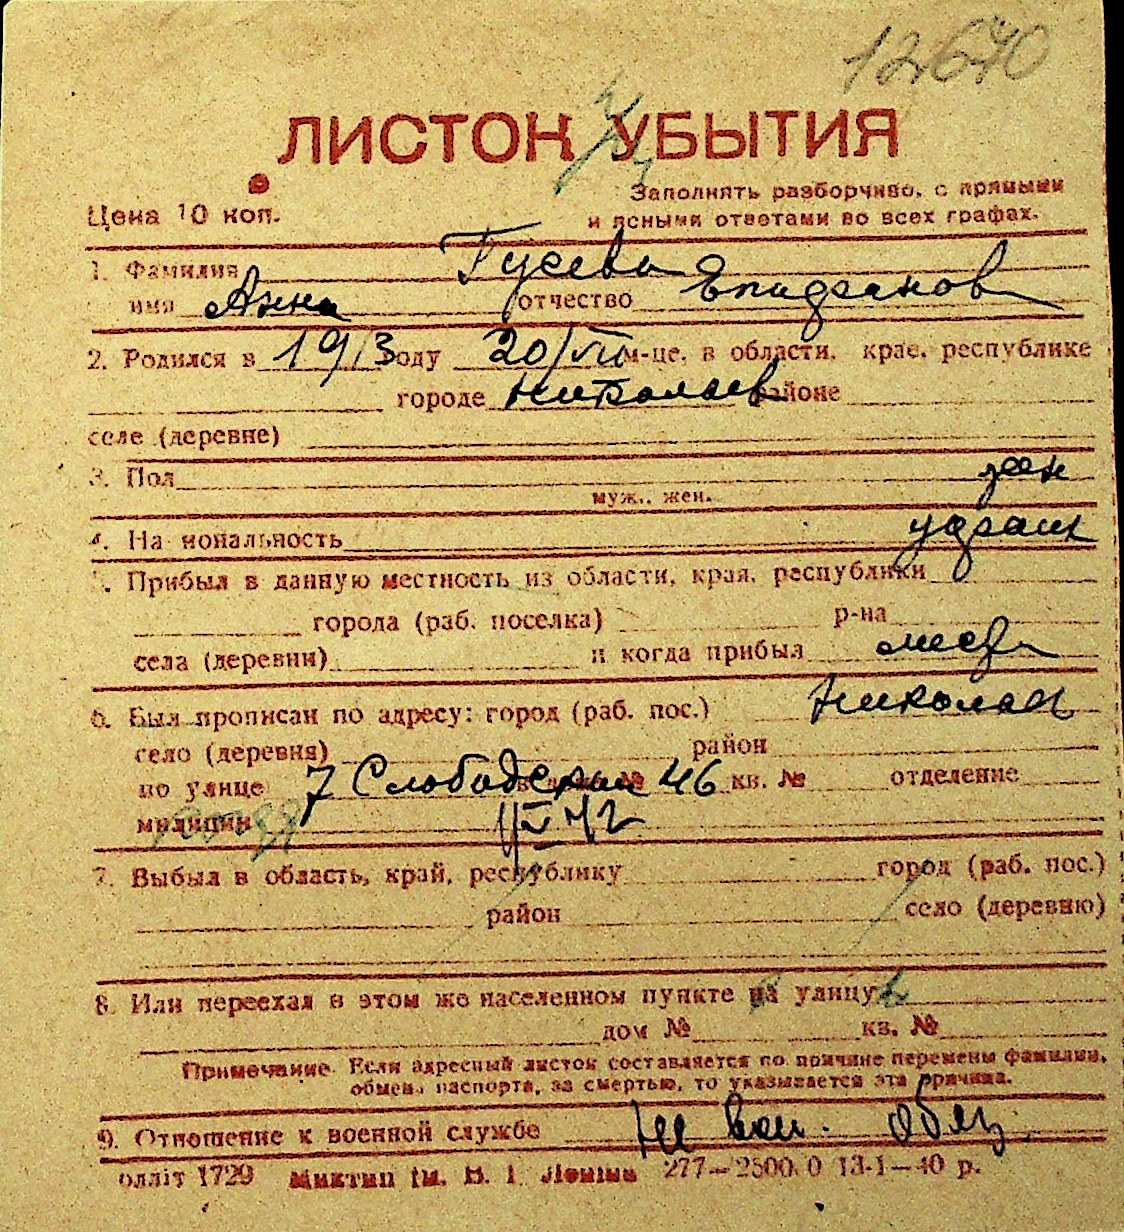 12640
ЛИСТОК УБЫТИЯ
Цена 10 коп.
Заполнять разборчиво, с прямыми
и ясными ответами во всех графах.
1. Фамилия Гусева
имя Анна отчество Епифанов
2. Родился в 1913 году 20/VII м-це, в области, крае, республике
городе Николаев районе
селе (деревне)
3. Пол жен
муж., жен.
4. На иональность украин
5. Прибыл в данную местность из области, края, республики
города (раб. поселка) р-на
села (деревни) и когда прибыл местн
6. Был прописан по адресу: город (раб. пос.) Николаев
село (деревня) район
по улице 7 Слободская № 46 кв. № отделение
милиции
7. Выбыл в область, край, республику город (раб. пос.)
район село (деревню)
8. Или переехал в этом же населенном пункте на улицу
дом № кв. №
Примечание. Если адресный листок составляется по причине перемены фамилии,
обмена паспорта, за смертью, то указывается эта причина.
9. Отношение к военной службе Не воен. обяз.
олліт 1729 Миктип ім. В. І. Леніна 277—2500.0 13-1—40 р.